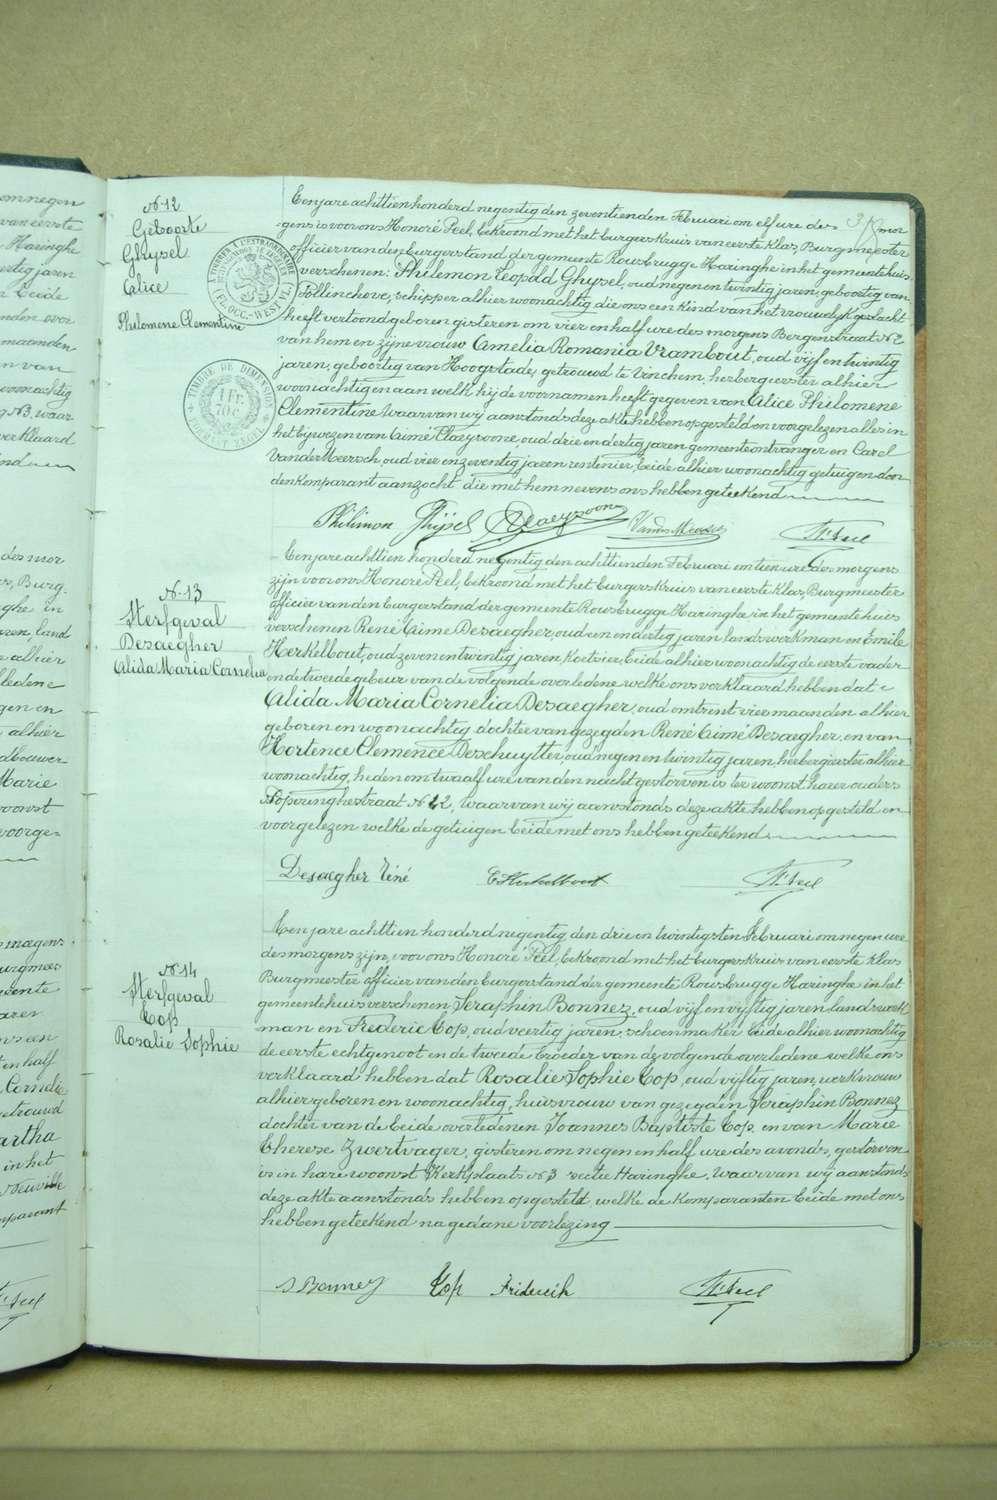 N. 12
Geboorte
Ghysel
Alice
Philomene Clementine
Een jare achttien honderd negentig den zeventienden Februari om elf ure des mor
gens is voor ons Honoré Peel, bekroond met het burgerskruis van eerste klas, Burgmeester
officier van den burgerstand der gemeente Rousbrugge Haringhe in het gemeentehuis
verschenen: Philemon Leopold Ghysel, oud negen en twintig jaren, geboortig van
Pollinchove, schipper alhier woonachtig die ons een kind van het vrouwelyk geslacht
heeft vertoond geboren gisteren om vier en half ure des morgens Bergenstraat N. 2
van hem en zijne vrouw Amelia Romania Vrambout, oud vijf en twintig
jaren, geboortig van Hoogstade, getrouwd te Vinchem, herbergierster alhier
woonachtig en aan welk hij de voornamen heeft gegeven van Alice Philomene
Clementine Waarvan wij aanstonds deze akte hebben opgesteld en voorgelezen alles in
het bijwezen van Aimé Claeysoone, oud drie en dertig jaren gemeenteontvanger en Carel
VanderMeersch, oud vier en zeventig jaren rentenier, beide alhier woonachtig getuigen door
den komparant aanzocht die met hem nevens ons hebben geteekend
Philimon Ghysel Claeysoone VanderMeersch Hré Peel
N. 13
Sterfgeval
Desaegher
Alida Maria Cornelia
Een jare achttien honderd negentig den achttienden Februari om tien ure des morgens
zijn voor ons Honoré Peel, bekroond met het burgerskruis van eerste klas, Burgmeester
officier van den burgerstand der gemeente Rousbrugge Haringhe in het gemeentehuis
verschenen René Aime Desaegher, oud een en dertig jaren, landswerkman en Emile
Herkelbout, oud zeven en twintig jaren, koetsier, beide alhier woonachtig de eerste vader
en de tweede gebuer van de volgende overledene welke ons verklaard hebben dat
Alida Maria Cornelia Desaegher, oud omtrint vier maanden alhier
geboren en woonachtig, dochter van gezegden René Aimé Desaegher, en van
Hortence Clemence Deschuytter, oud negen en twintig jaren, herbergierster alhier
woonachtig, heden om twaalf ure van den nacht gestorven is ter woonst harer ouders
Poperinghestraat N. 22, waarvan wij aanstonds deze akte hebben opgesteld en
voorgelezen welke de getuigen beide met ons hebben geteekend
Desaegher René E Herkelbout Hré Peel
N. 14
Sterfgeval
Cop
Rosalie Sophie
Een jare achttien honderd negentig den drie en twintigsten Februari om negen ure
des morgens zijn, voor ons Honoré Peel, bekroond met het burgerskruis van eerste klas
Burgmeester officier van den burgerstand der gemeente Rousbrugge Haringhe in het
gemeentehuis verschenen Seraphin Bonnez, oud vijf en vijftig jaren, landswerk
man en Frederic Cop, oud veertig jaren, schoenmaker, beide alhier woonachtig
de eerste echtgenoot en de tweede broeder van de volgende overledene welke ons
verklaard hebben dat Rosalie Sophie Cop, oud vijftig jaren, werkvrouw
alhier geboren en woonachtig, huisvrouw van gezegden Seraphin Bonnez
dochter van de beide overledenen Joannes Baptiste Cop, en van Marie
Therese Zwertvager, gisteren om negen en half ure des avonds, gestorven
is in hare woonst Kerkplaats N. 3 sectie Haringhe. Waarvan wij aanstonds
deze akte aanstonds hebben opgesteld, welke de komparanten beide met ons
hebben geteekend na gedane voorlezing
S Bonnez Cop Friderich Hré Peel